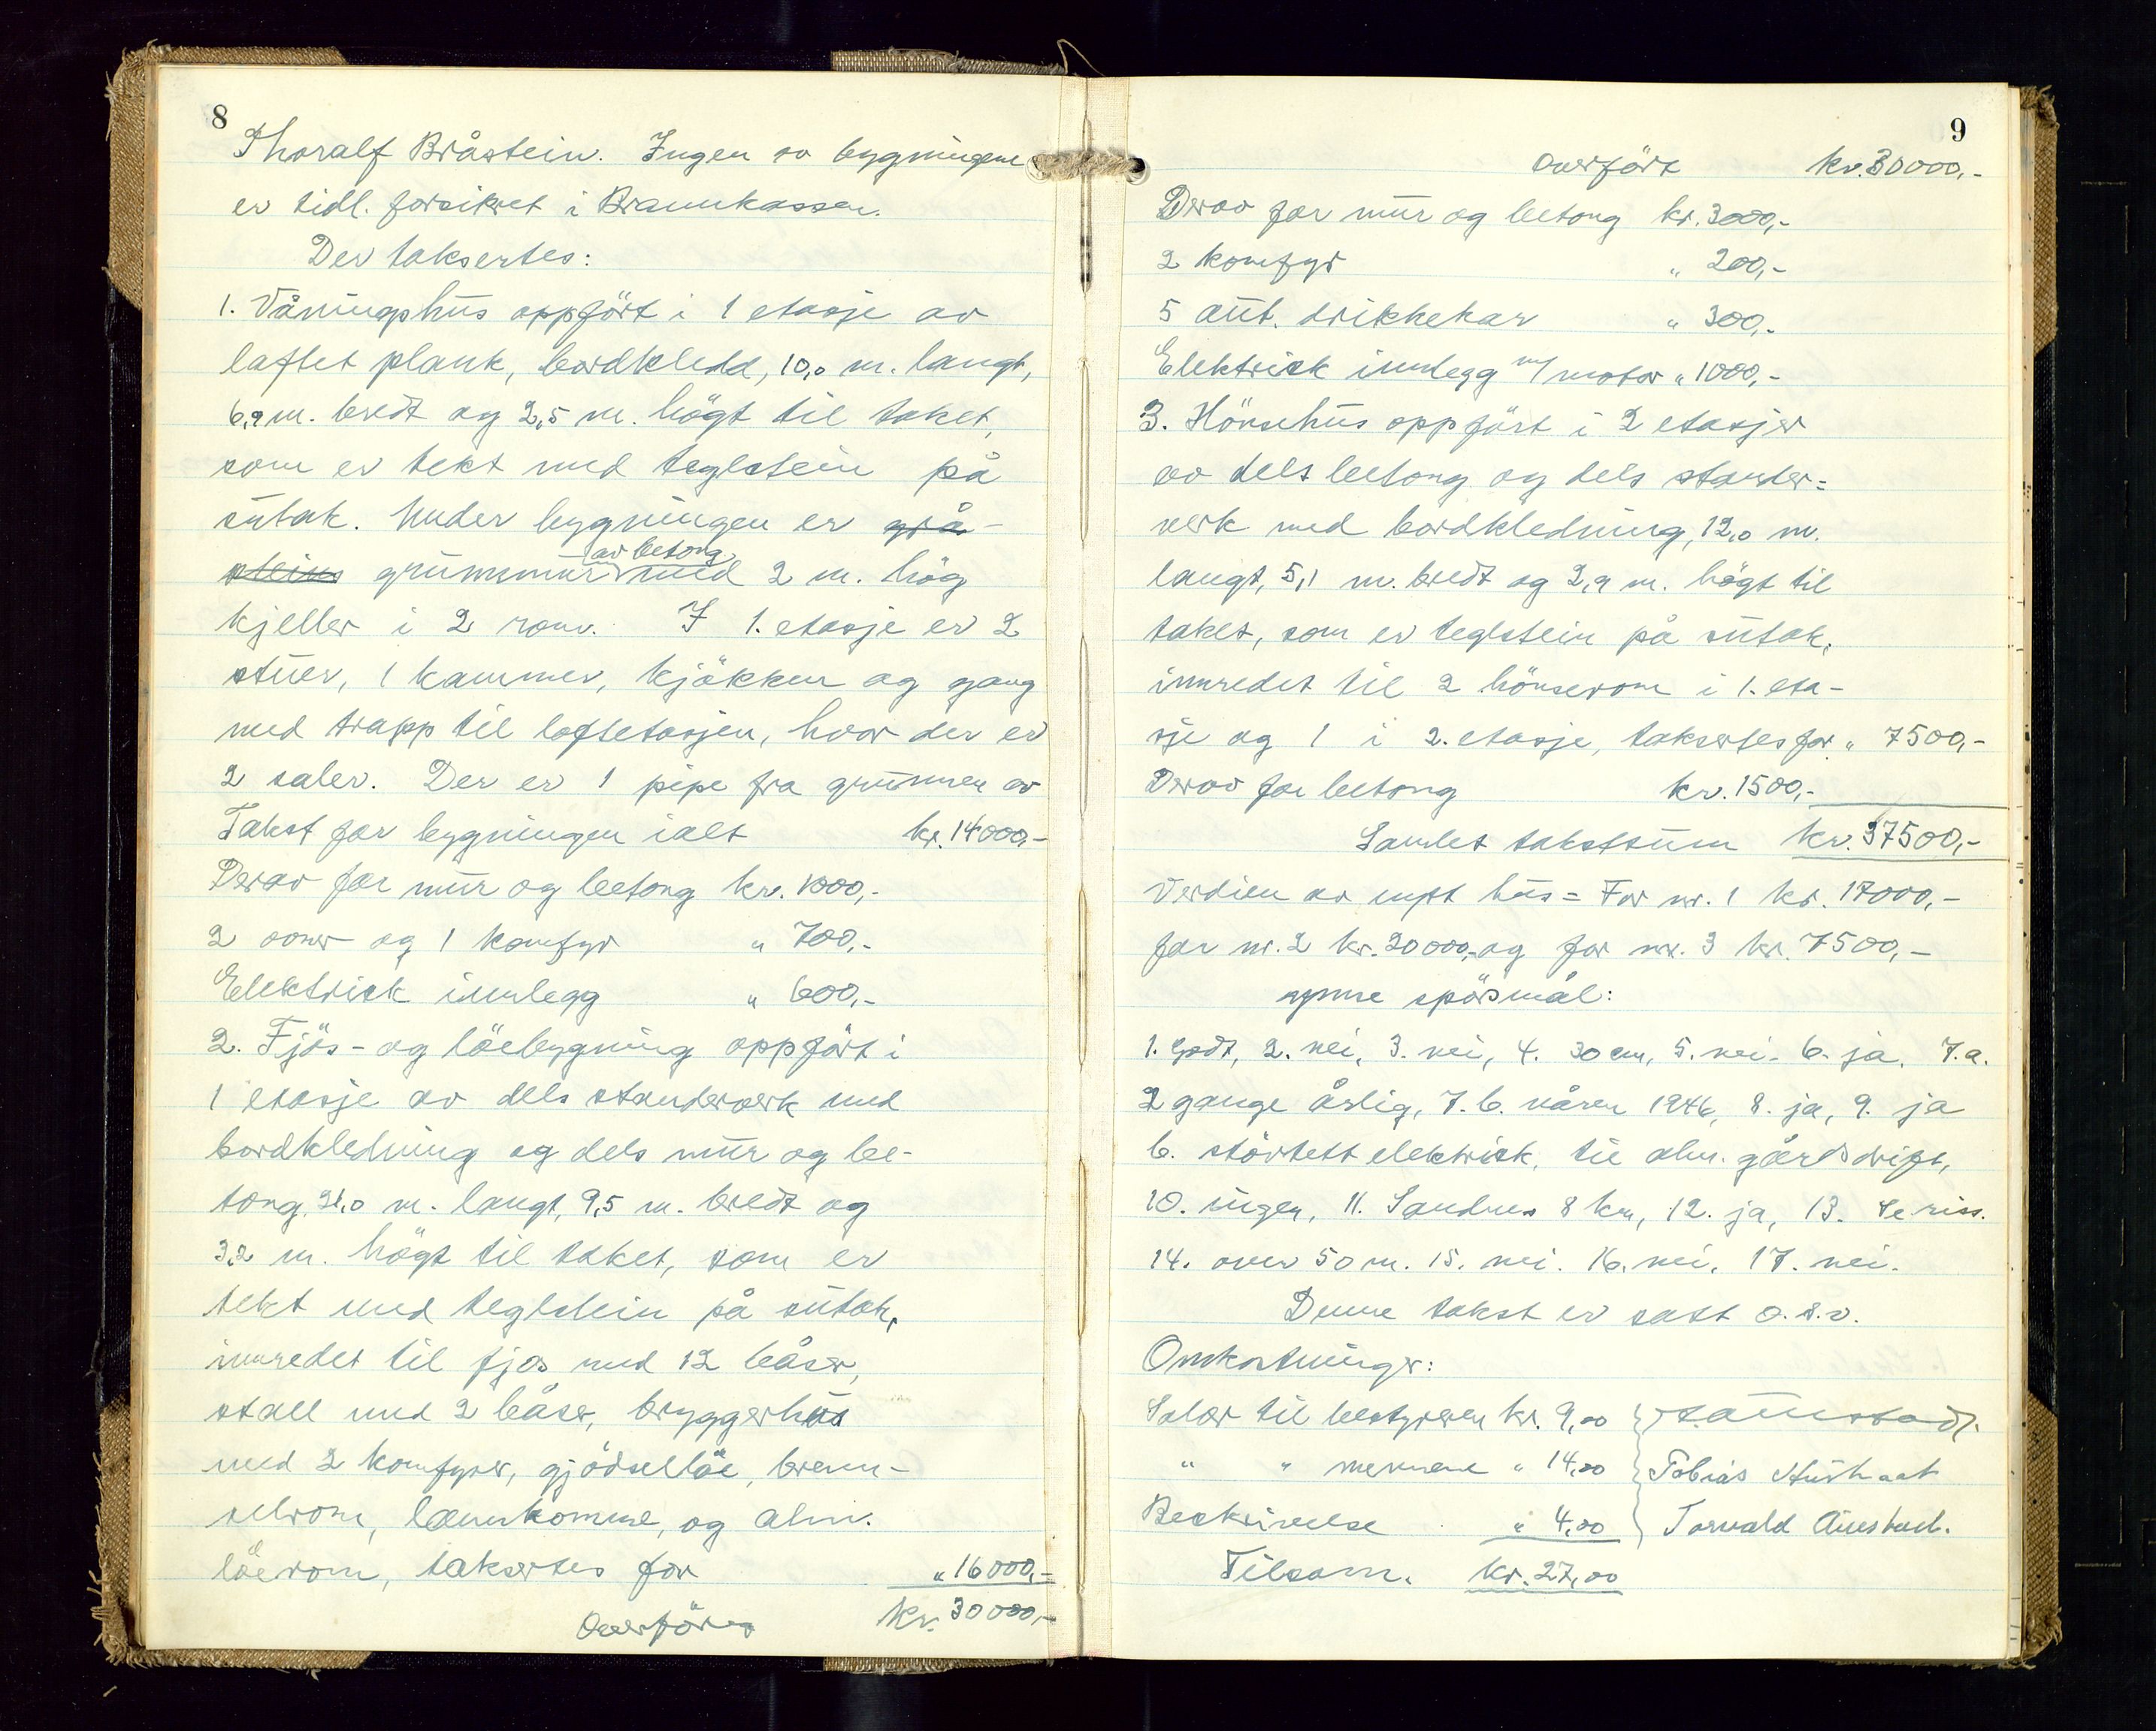 8
Thoralf Bråstein. Ingen av bygningene
er tidl. forsikret i Brannkassen.
Der taksertes:
1. Våningshus oppfört i 1 etasje av
laftet plank, bordkledd, 10,0 m. langt,
6,9 m. bredt og 2,5 m. högt til taket,
som er tekt med teglstein på
sutak. Under bygningen er grå-
steins grunnmur av betong med 2 m. hög
kjeller i 2 rom. I 1. etasje er 2
stuer, 1 kammer, kjökken og gang
med trapp til loftetasjen, hvor der er
2 saler. Der er 1 pipe fra grunnen av
Takst for bygningen ialt kr. 14000,-
Derav for mur og betong kr. 1000,-
2 ovner og 1 komfyr " 700,-
Elektrisk innlegg " 600,-
2. Fjös- og löebygning oppfört i
1 etasje av dels standerverk med
bordkledning og dels mur og be-
tong, 21,0 m. langt, 9,5 m. bredt og
3,2 m. högt til taket, som er
tekt med teglstein på sutak,
innredet til fjøs med 12 båser,
stall med 2 båser, bryggerhus
med 2 komfyrer, gjödsellöe, bren-
selrom, lænnkomme, og alm.
löerom, taksertes for " 16000,-
Overföres kr. 30000,-
9
Overfört kr. 30000,-
Derav for mur og betong kr. 3000,-
2 komfyr " 200,-
5 aut. drikkekar " 300,-
Elektrisk innlegg m/ motor " 1000,-
3. Hönsehus oppfört i 2 etasjer
av dels betong og dels stander=
verk med bordkledning, 12,0 m.
langt, 5,1 m. bredt og 2,9 m. högt til
taket, som er teglstein på sutak,
innredet til 2 hönserom i 1. eta-
sje og 1 i 2. etasje, taksertes for " 7500,-
Derav for betong kr. 1500,-
Samlet takstsum kr. 37500,-
Verdien av nytt hus = For nr. 1 kr. 17000,-
for nr. 2 kr. 20000,- og for nr. 3 kr. 7500,-
spörsmål:
1. godt, 2. nei, 3. nei, 4. 30 cm, 5. nei. 6. ja. 7.a.
2 gange årlig, 7.b. våren 1946, 8. ja, 9. ja
b. störtett elektrisk, til alm. gårdsdrift,
10. ingen, 11. Sandnes 8 km, 12. ja, 13. Se riss.
14. over 50 m. 15. nei. 16. nei. 17. nei.
Denne takst er satt o.s.v.
Omkostninger:
Salær til bestyreren kr. 9,00
" " mennene " 14,00 Tobias
Beskrivelse " 4,00 Torvald
Tilsam. kr. 27,00